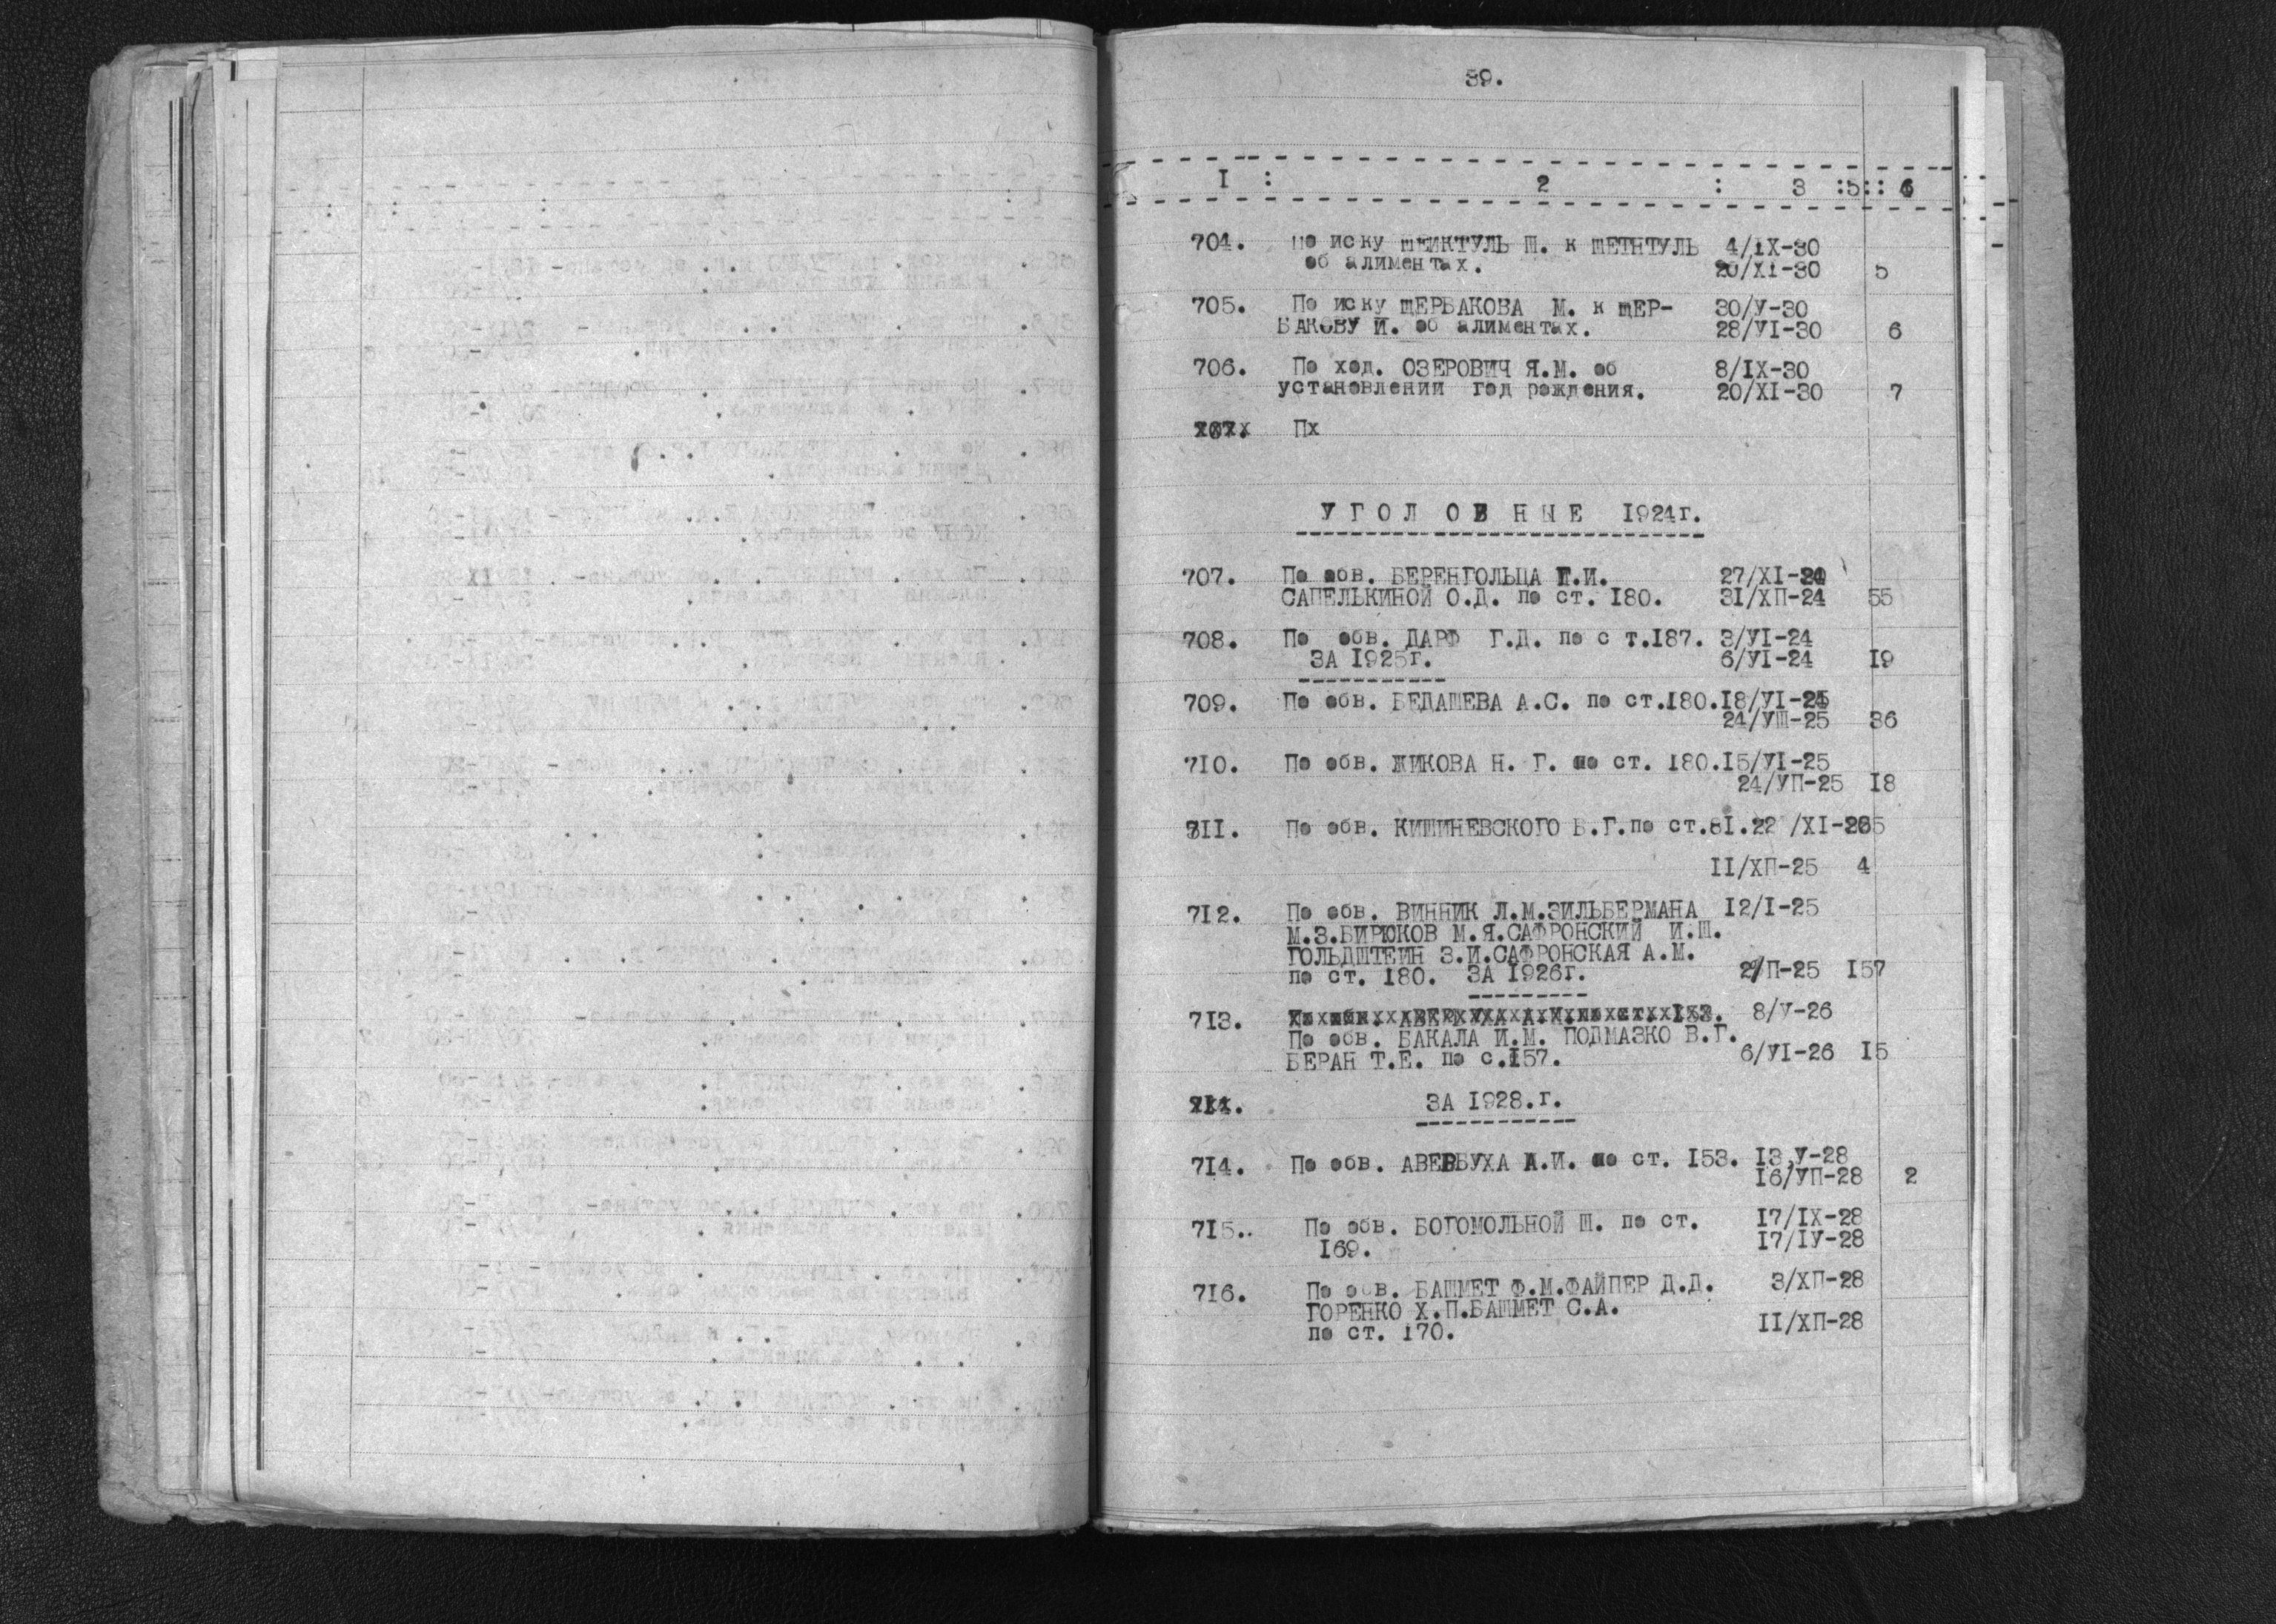 39.
I : 2 : 3 :5:: 6
704. По иску ШЕЙКТУЛЬ Ш. к ШЕТНТУЛЬ 4/IX-30
об алиментах. 20/XI-30 5
705. По иску ЩЕРБАКОВА М. к ЩЕР- 30/У-30
БАКОВУ И. об алиментах. 28/УI-30 6
706. По ход. ОЗЕРОВИЧ Я.М. об 8/IX-30
установлении год рождения. 20/XI-30 7
707. Пх
У Г О Л О В Н Ы Е I924г.
707. По обв. БЕРЕНГОЛЬЦА П.И. 27/XI-24
САПЕЛЬКИНОЙ О.Д. по ст. I80. 3I/ХП-24 55
708. По обв. ДАРФ Г.Д. по с т.I87. 3/УI-24
ЗА I925г. 6/УI-24 I9
709. По обв. БЕДАШЕВА А.С. по ст.I80. I8/УI-25
24/УШ-25 36
7I0. По обв. ЖИКОВА Н. Г. по ст. I80. I5/УI-25
24/УП-25 I8
7II. По обв. КИШИНЕВСКОГО Б.Г.по ст.8I. 22 /XI-265
II/ХП-25 4
7I2. По обв. ВИННИК Л.М.ЗИЛЬБЕРМАНА I2/I-25
М.З.БИРЮКОВ М.Я.САФРОНСКИЙ И.Ш.
ГОЛЬДШТЕИН З.И.САФРОНСКАЯ А.М.
по ст. I80. ЗА I926г. /П-25 I57
7I3. 8/У-26
По обв. БАКАЛА И.М. ПОДМАЗКО В.Г.
БЕРАН Т.Е. по с.I57. 6/УI-26 I5
7I4. ЗА I928.г.
7I4. По обв. АВЕРБУХА А.И. по ст. I53. I3.У-28
I6/УП-28 2
7I5.. По обв. БОГОМОЛЬНОЙ Ш. по ст. I7/IX-28
I69. I7/IУ-28
7I6. По обв. БАШМЕТ Ф.М.ФАЙПЕР Д.Д. 3/ХП-28
ГОРЕНКО Х.П.БАШМЕТ С.А.
по ст. I70. II/ХП-28